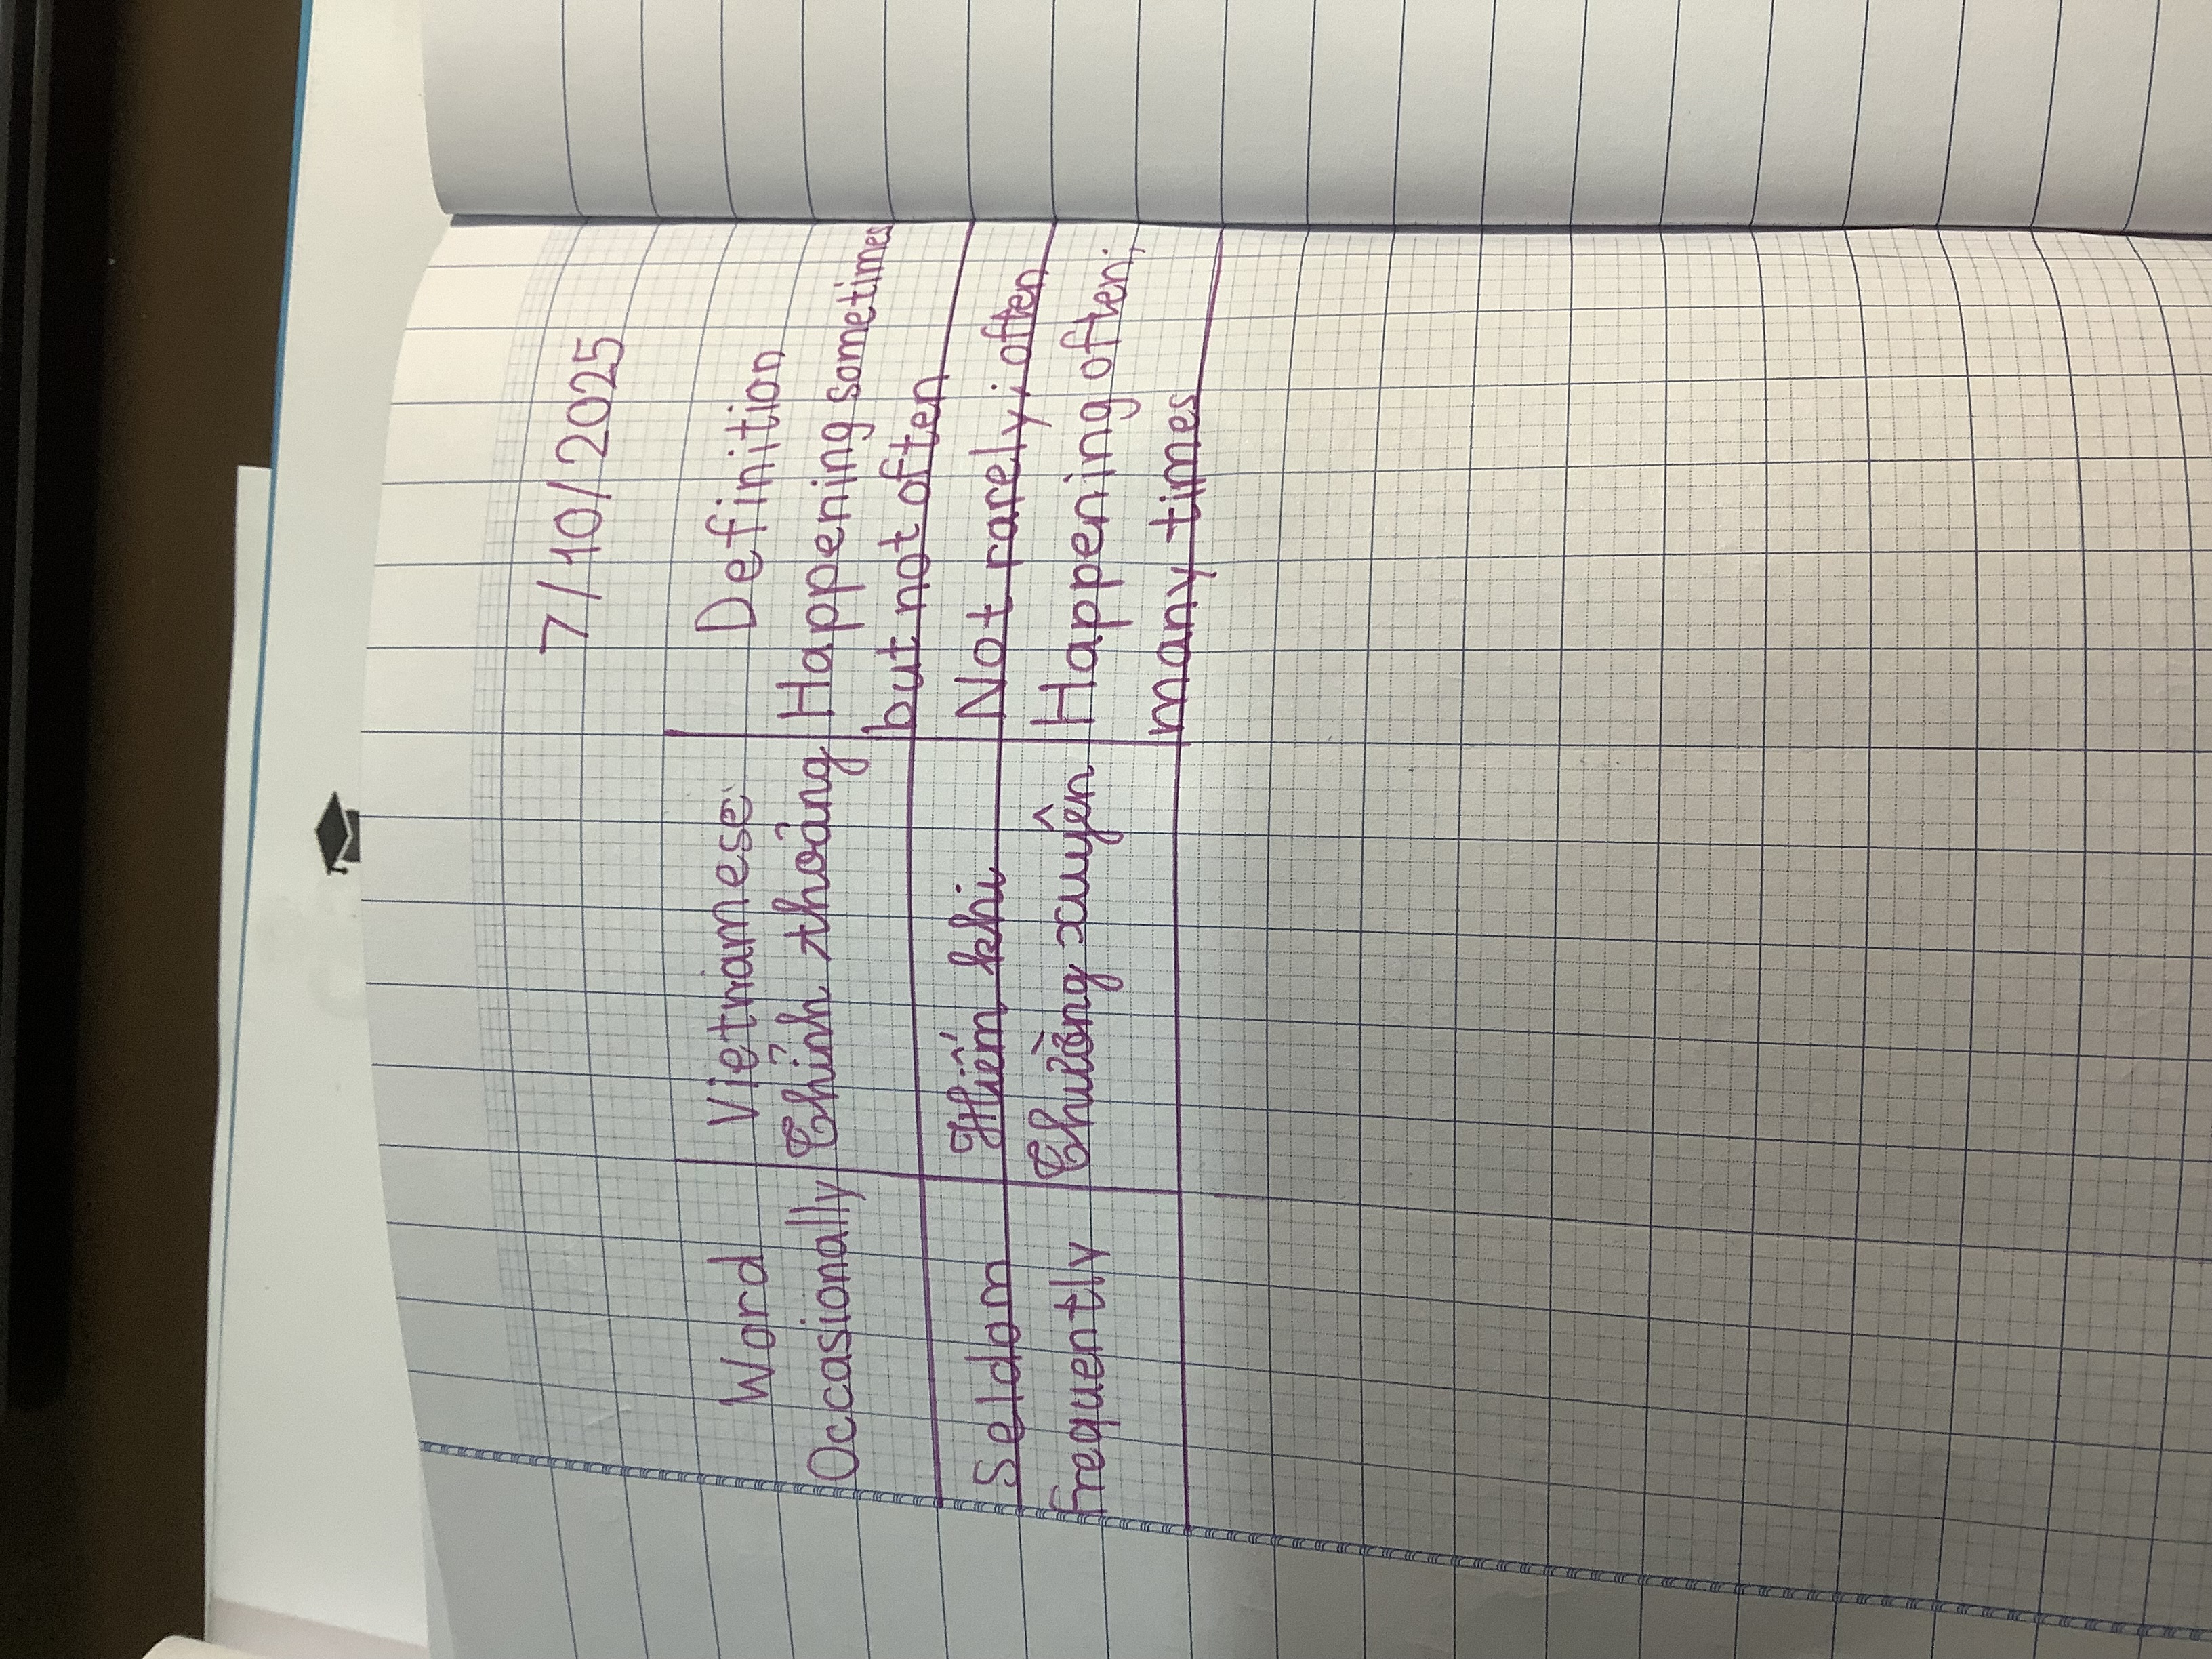 7/10/2025
Word Vietnamese Definition
Occasionally Thỉnh thoảng Happening sometimes
but not often
Seldom Hiếm khi Not rarely; often
Frequently Thường xuyên Happening often;
many times